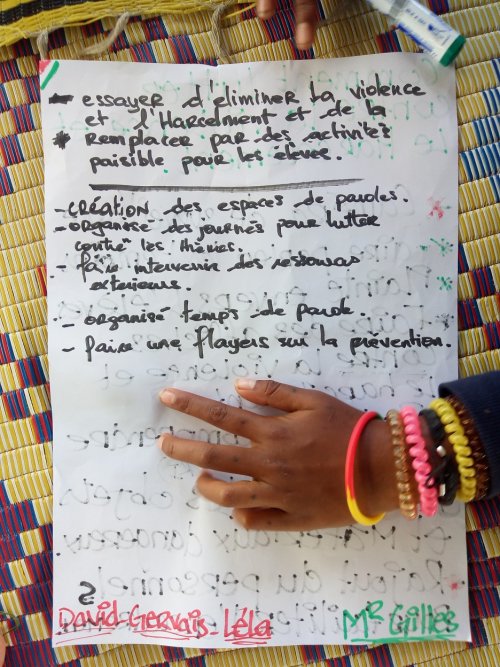 - essayer d'eliminer la violence
et l'Harcelment et de la
* Remplacer par des activités
paisible pour les éleves.
- CRÉATION des espices de paroles.
- organisé des journés pour lutter
contre les
- faire intervenir des
exterieurs.
- organisé temps de parole.
- faire une flayers sur la prévention.
2
David-Gervais-Léla
Mr Gilles